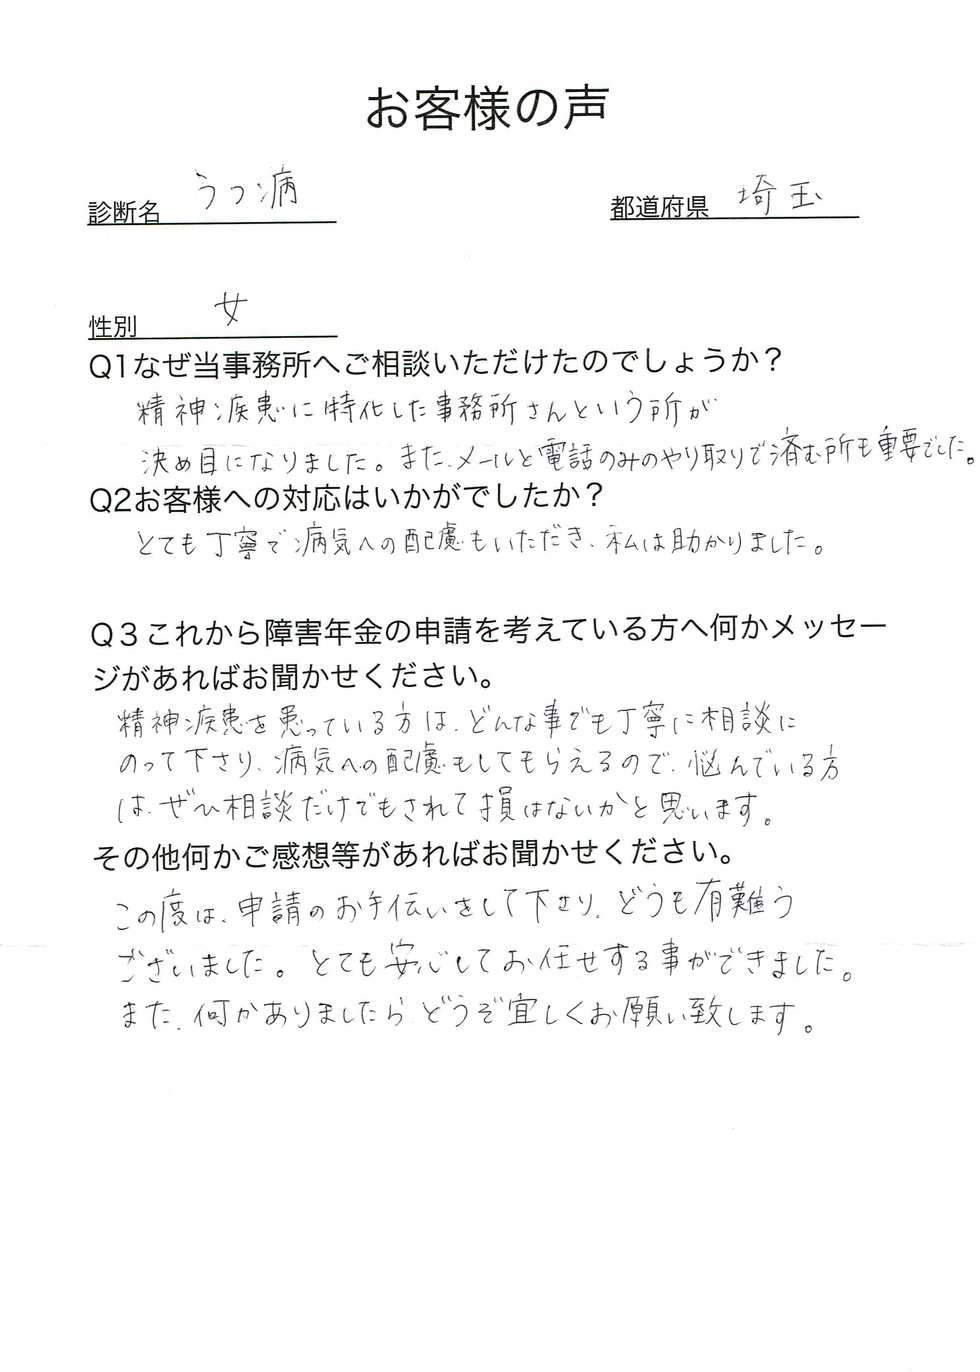 お客様の声
診断名 うつ病
都道府県 埼玉
性別 女
Q1なぜ当事務所へご相談いただけたのでしょうか？
精神疾患に特化した事務所さんという所が
決め目になりました。また、メールと電話のみのやり取りで済む所も重要でした。
Q2お客様への対応はいかがでしたか？
とても丁寧で病気への配慮もいただき、私は助かりました。
Q３これから障害年金の申請を考えている方へ何かメッセー
ジがあればお聞かせください。
精神疾患を患っている方は、どんな事でも丁寧に相談に
のって下さり、病気への配慮もしてもらえるので、悩んでいる方
は、ぜひ相談だけでもされて損はないかと思います。
その他何かご感想等があればお聞かせください。
この度は、申請のお手伝いをして下さり、どうも有難う
ございました。とても安心してお任せする事ができました。
また、何かありましたらどうぞ宜しくお願い致します。